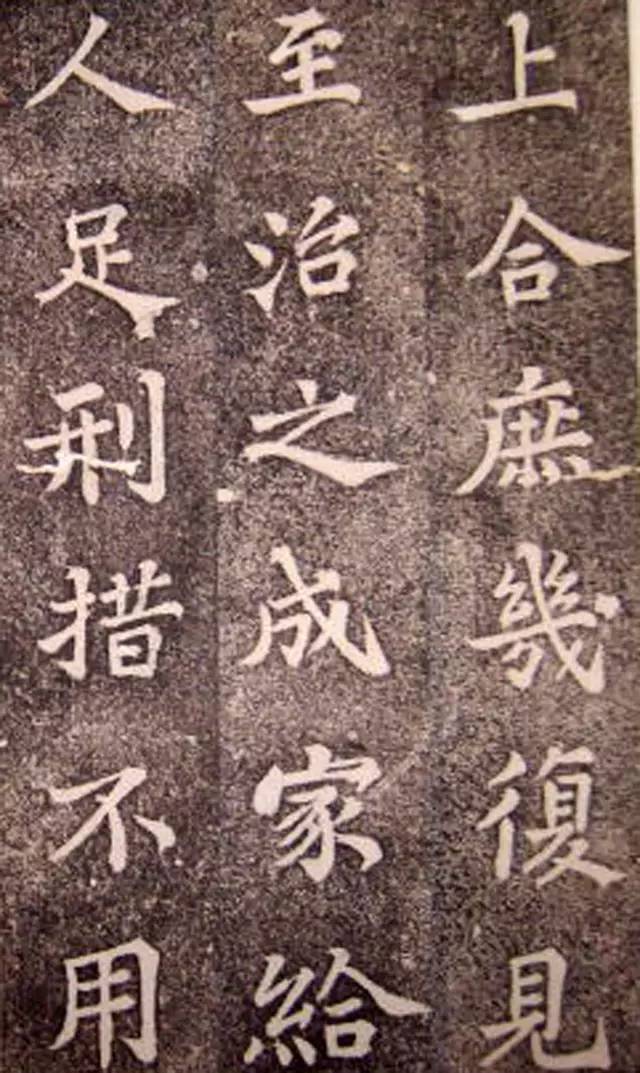 上合庶幾復見
至治之成家給
人足刑措不用